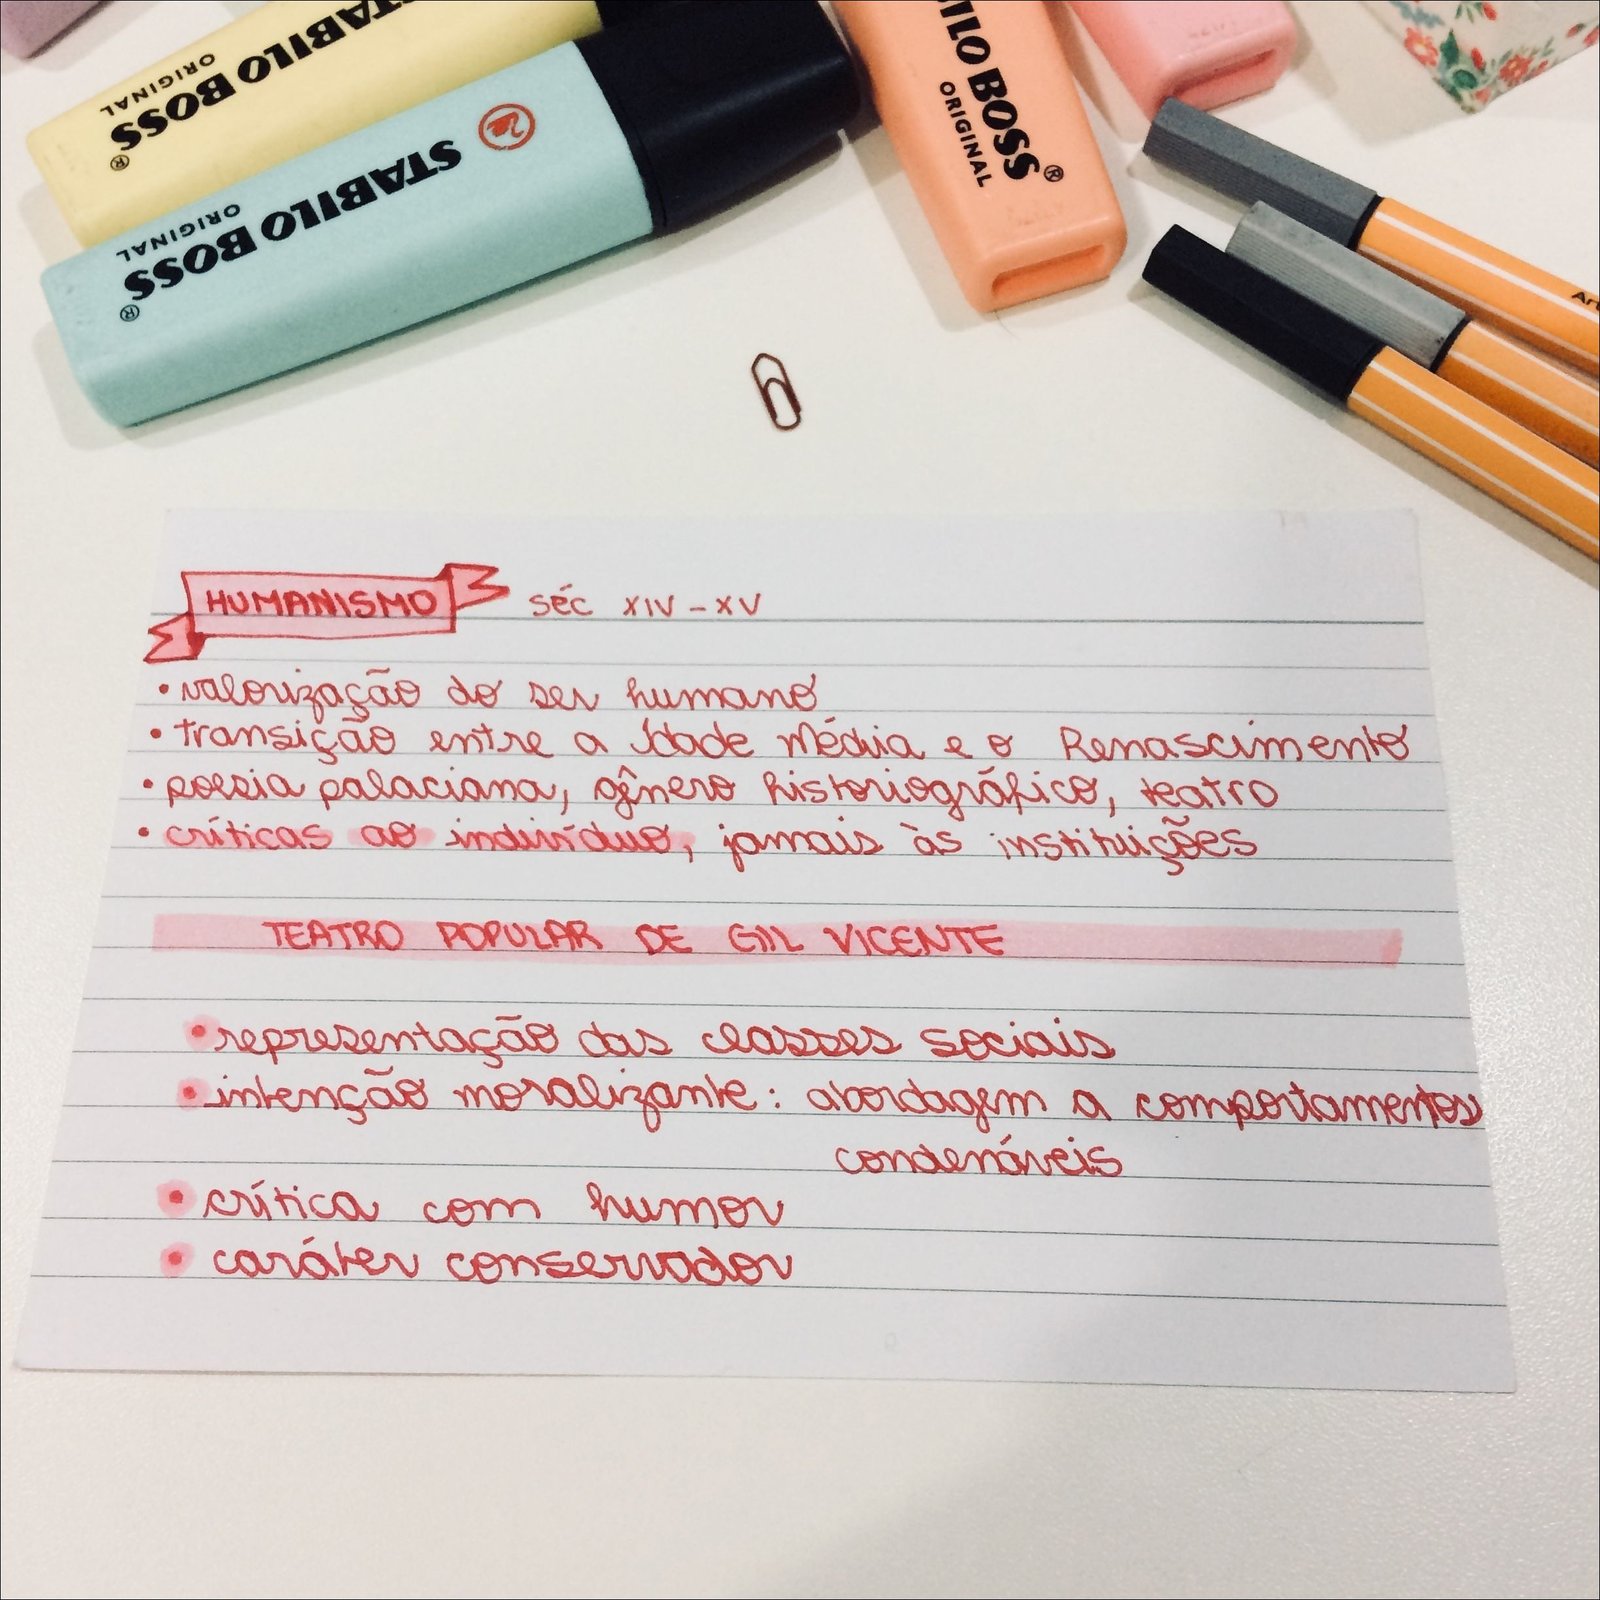 STABILO BOSS®
ORIGINAL
STABILO BOSS®
ORIGINAL
BILO BOSS®
ORIGINAL
HUMANISMO séc XIV - XV
• valorização do ser humano
• transição entre a Idade Média e o Renascimento
• poesia palaciana, gênero historiográfico, teatro
• críticas ao indivíduo, jamais às instituições
TEATRO POPULAR DE GIL VICENTE
• representação das classes sociais
• intenção moralizante: abordagem a comportamentos
condenáveis
• crítica com humor
• caráter conservador